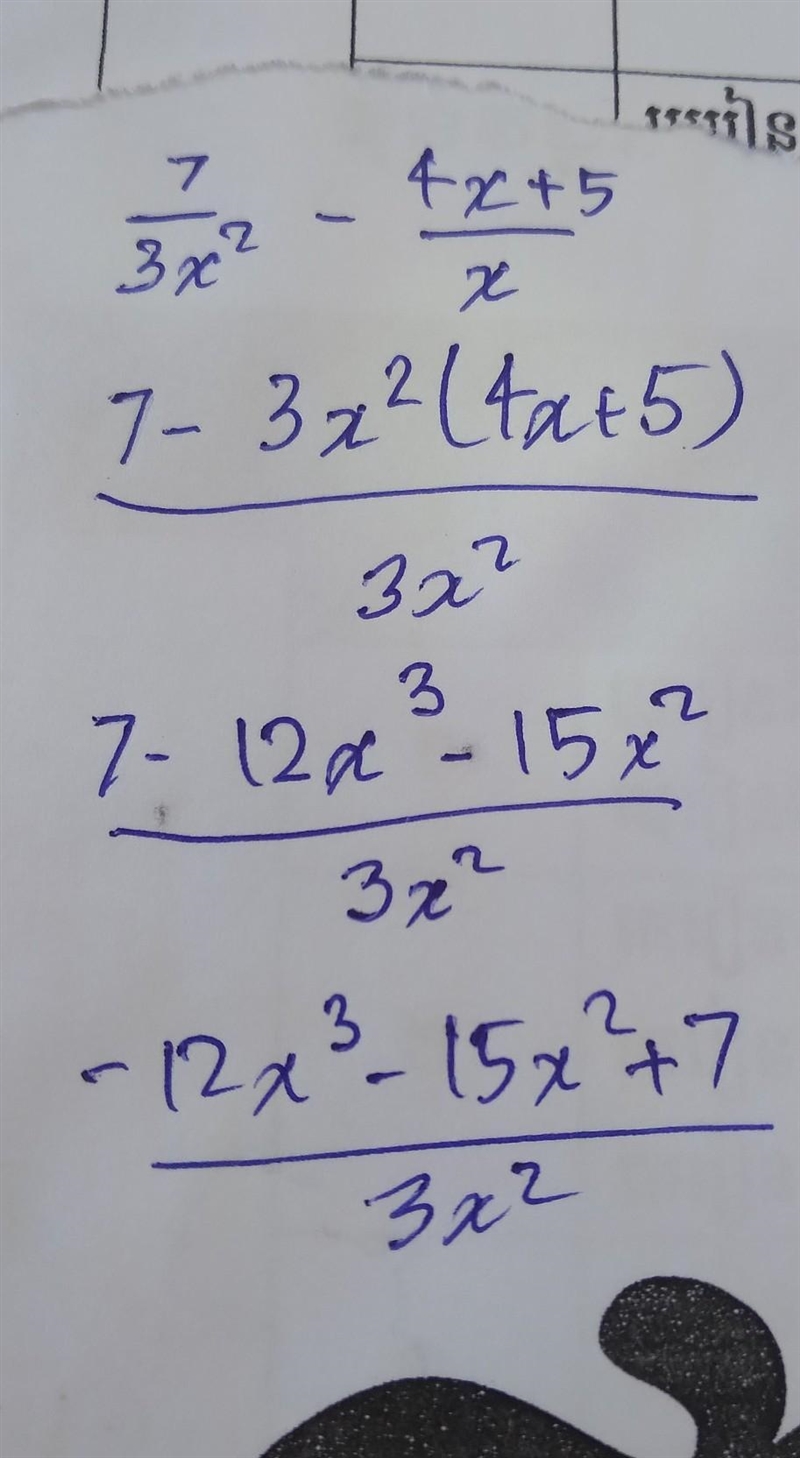 7/3x² - (4x+5)/x
(7 - 3x²(4x+5))/3x²
(7 - 12x³ - 15x²)/3x²
(-12x³ - 15x² + 7)/3x²